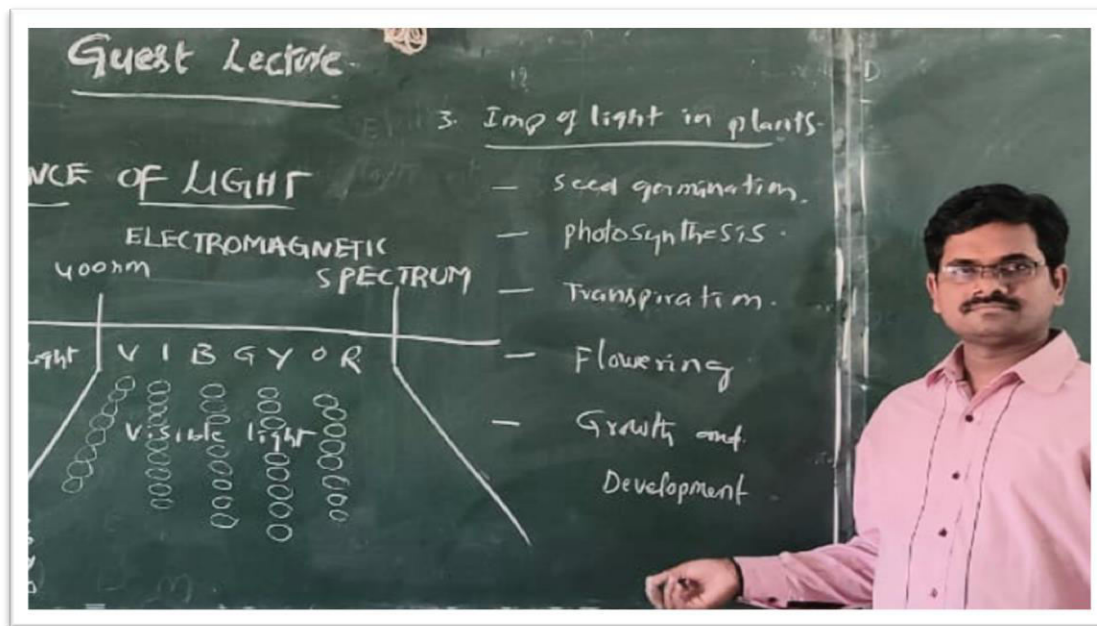 Guest Lecture
NCE OF LIGHT
ELECTROMAGNETIC
SPECTRUM
400nm
light V I B G Y O R
Visible light
3. Imp of light in plants.
— Seed germination.
— Photosynthesis.
— Transpiration.
— Flowering
— Growth and
Development